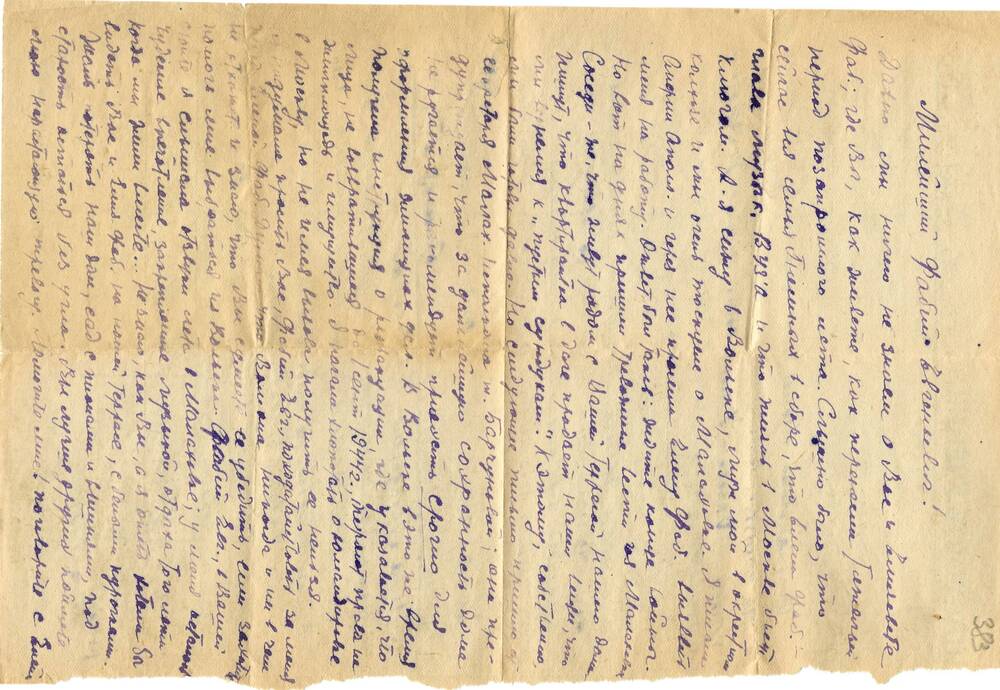 383
Милейший Фабий Евгеньевич!
Давно мы ничего не знаем о Вас и Елизавете
Фаб.; где Вы, как живете, как перенесли тяжелый
период позапрошлого лета. Слышно было, что
сейчас вся семья Гнесиных в сборе, что Елена Фаб. –
глава музык. ВУЗ'а и что жизнь в Москве бьет
ключом. А я сижу в Вольске, муж мой в окрестном
колхозе и мы очень тоскуем о Малаховке. Я писала
Аполл. и через нее просила Елену Фаб. вызвать
меня на работу. Ответ был таков: ждите конца войны.
Но вот на днях пришли тревожные вести из Малаховки.
Соседи – же, что живут рядом с Вашей террасой нашего дома
пишут, что квартирантка в даче продает наши вещи, что
мы вернемся к „пустым сундукам". К этому, собственно,
мы были готовы давно. Но следующее письмо пришло от
секретаря Малах. исполкома т. Барчуновой; она пре-
дупреждает, что за дальнейшую сохранность дома
не ручается и рекомендует приехать срочно для
оформления жилищных дел. В Вольске в это же время
получена инструкция о реэвакуации, где указывается, что
лица, не возвратившиеся до 1 сент 1944 г., теряют права на
жилплощадь и имущество. Я начала хлопотать о командировке
в Москву, но не имея вызова получить ее нельзя.
Я надумала просить Вас, Фабий Евг., походатайствовать за меня
перед Еленой Фаб. Думаю что Вам она никогда и ни в чем
не откажет и знаю, что Вы сумеете ее убедить, если захотите
помочь мне выбраться из Вольска. Фабий Евг., в Вашей
сюите я слышала отзвуки лета в Малаховке; у меня осталось
чудесное впечатление, закрепленное музыкой, отдыха того лета
когда мы жили вместе... Не знаю, как Вы, а я опять хотела бы
видеть Вас и Елиз. Фаб. на нашей террасе, с белыми курочками.
Жаль потерять наш дом, сад с пионами и вишнями, под
старость остаться без угла. Вы лучше других поймете
мою нарастающую тревогу. Помогите мне! поговорите с